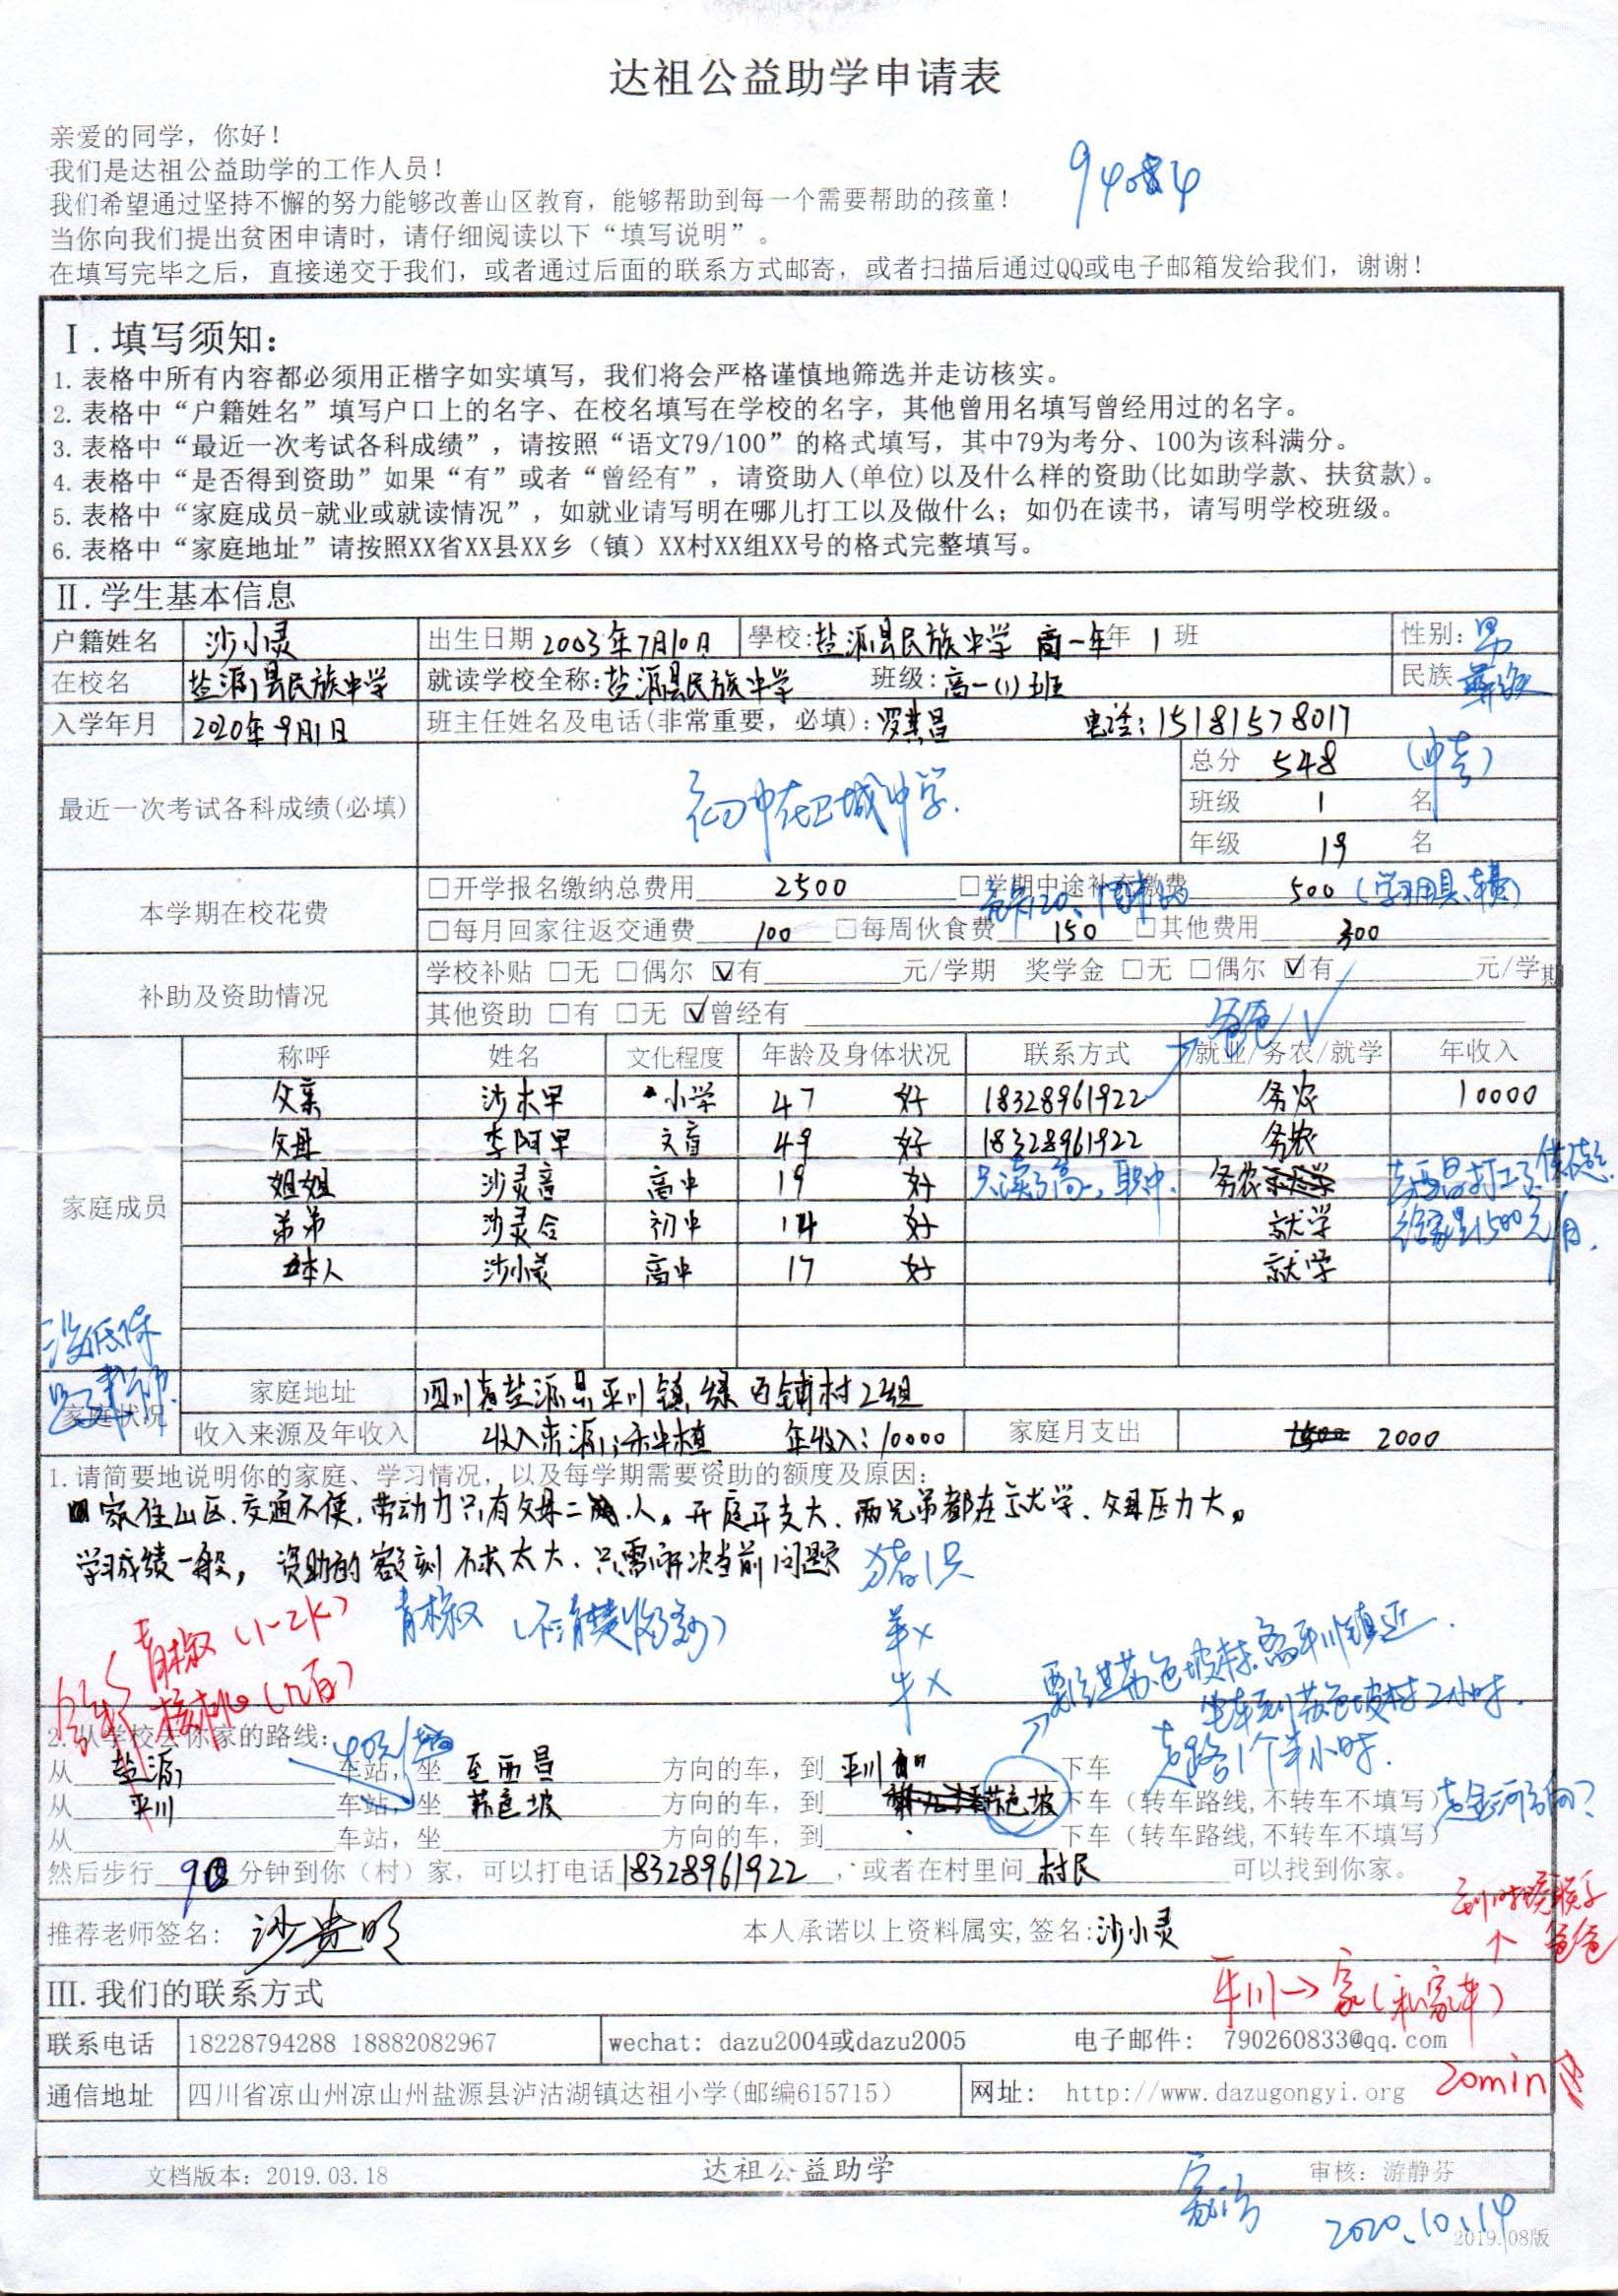 达祖公益助学申请表
亲爱的同学，你好！
我们是达祖公益助学的工作人员！
94084
我们希望通过坚持不懈的努力能够改善山区教育，能够帮助到每一个需要帮助的孩童！
当你向我们提出贫困申请时，请仔细阅读以下“填写说明”。
在填写完毕之后，直接递交于我们，或者通过后面的联系方式邮寄，或者扫描后通过QQ或电子邮箱发给我们，谢谢！
Ⅰ.填写须知：
1. 表格中所有内容都必须用正楷字如实填写，我们将会严格谨慎地筛选并走访核实。
2. 表格中“户籍姓名”填写户口上的名字、在校名填写在学校的名字，其他曾用名填写曾经用过的名字。
3. 表格中“最近一次考试各科成绩”，请按照“语文79/100”的格式填写，其中79为考分、100为该科满分。
4. 表格中“是否得到资助”如果“有”或者“曾经有”，请资助人(单位)以及什么样的资助(比如助学款、扶贫款)。
5. 表格中“家庭成员-就业或就读情况”，如就业请写明在哪儿打工以及做什么；如仍在读书，请写明学校班级。
6. 表格中“家庭地址”请按照XX省XX县XX乡（镇）XX村XX组XX号的格式完整填写。
Ⅱ.学生基本信息
户籍姓名 沙小灵 出生日期 2003年7月10日 學校:盐源县民族中学 高一年年 1 班 性别: 男
在校名 盐源县民族中学 就读学校全称:盐源县民族中学 班级:高一(1)班 民族 彝族
入学年月 2020年9月1日 班主任姓名及电话(非常重要，必填): 电话:15181578017
最近一次考试各科成绩(必填) 初中在卫城中学. 总分 548 (中考)
班级 1 名
年级 19 名
本学期在校花费 □开学报名缴纳总费用 2500 □学期中途补充缴费 500 (学习用具、)
□每月回家往返交通费 100 □每周伙食费 150 □其他费用 300
补助及资助情况 学校补贴 □无 □偶尔 ☑有 元/学期 奖学金 □无 □偶尔 ☑有 元/学期
其他资助 □有 □无 ☑曾经有
爸爸√
家庭成员 称呼 姓名 文化程度 年龄及身体状况 联系方式 就业/务农/就学 年收入
父亲 沙木早 小学 47 好 18328961922 务农 10000
父母 李阿早 文盲 49 好 18328961922 务农
姐姐 沙灵 高中 19 好 只读了高一，职中. 务农 去西昌打工了
弟弟 沙灵合 初中 14 好 就学 给家里1500元/月.
本人 沙小灵 高中 17 好 就学
没低保
家庭状况 家庭地址 四川省盐源县平川镇 绿 铺村2组
收入来源及年收入 收入来源: 种植 年收入:10000 家庭月支出 2000
1.请简要地说明你的家庭、学习情况，以及每学期需要资助的额度及原因:
家住山区.交通不便,劳动力只有父母二人。开庭开支大、两兄弟都在就学、父母压力大。
学习成绩一般，资助的额刻不求太大.只需解决当前问题 猪1只
青椒 (不清楚收多少) 羊×
牛×
青椒 (1-2k)
核桃 (几百)
离平川镇近.
坐车到苏色坡村2小时.
走路1个半小时.
2.从学校去你家的路线:
从 盐源 车站, 坐 至西昌 方向的车, 到 平川 下车
从 平川 车站, 坐 苏色坡 方向的车, 到 苏色坡 下车（转车路线,不转车不填写） 走金河方向?
从 车站, 坐 方向的车, 到 下车（转车路线,不转车不填写）
然后步行 90 分钟到你（村）家，可以打电话 18328961922 ，或者在村里问 村民 可以找到你家。
推荐老师签名: 沙贵明 本人承诺以上资料属实,签名:沙小灵
爸爸
平川→家(私家车)
20min
Ⅲ.我们的联系方式
联系电话 18228794288 18882082967 wechat: dazu2004或dazu2005 电子邮件: 790260833@qq.com
通信地址 四川省凉山州凉山州盐源县泸沽湖镇达祖小学(邮编615715) 网址: http://www.dazugongyi.org
文档版本: 2019.03.18 达祖公益助学 审核: 游静芬
2020.10.14
2019.08版